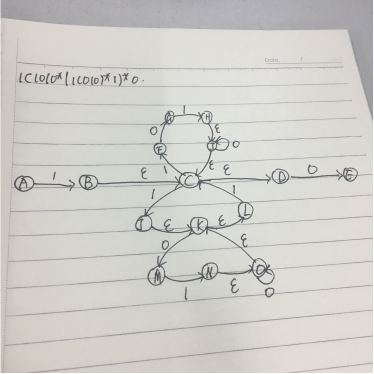 Date. /
1(1010*|1(010)*1)*0.
1
G
H
0
ε
F
I
0
A
1
B
ε
1
ε
C
ε
D
0
E
1
1
ε
ε
L
K
0
ε
M
1
N
ε
O
0